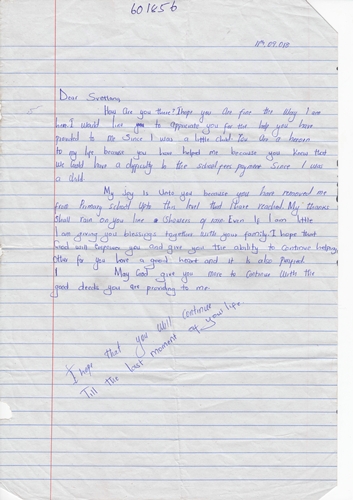 601656
11th.09.018
Dear
How are you there? I hope you are fine the way I am
here I would like to appreciate you for the help you have
provided to me Since I was a little child. You are a
to my life because you have helped me because you know that
We could have a difficulty in the school fees payment Since I was
a child
My joy is unto you because you have removed me
from Primary school upto this level that I have reached My thanks
Shall rain on you like Showers of rain Even if I am little
I am giving you blessings together with your family. I hope that
will Empower you and give you the ability to continue helping
other for you have a good heart and it is also
I May God give you more to Continue with the
good deeds you are providing to me.
I hope that you will continue
Till the last moment of your life